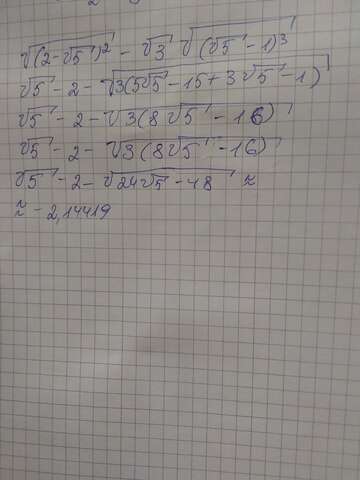 √(2-√5)² - √3 √(√5 - 1)³
√5 - 2 - √3(5√5 - 15 + 3√5 - 1)
√5 - 2 - √3(8√5 - 16)
√5 - 2 - √3(8√5 - 16)
√5 - 2 - √24√5 - 48 ≈
≈ - 2,14419